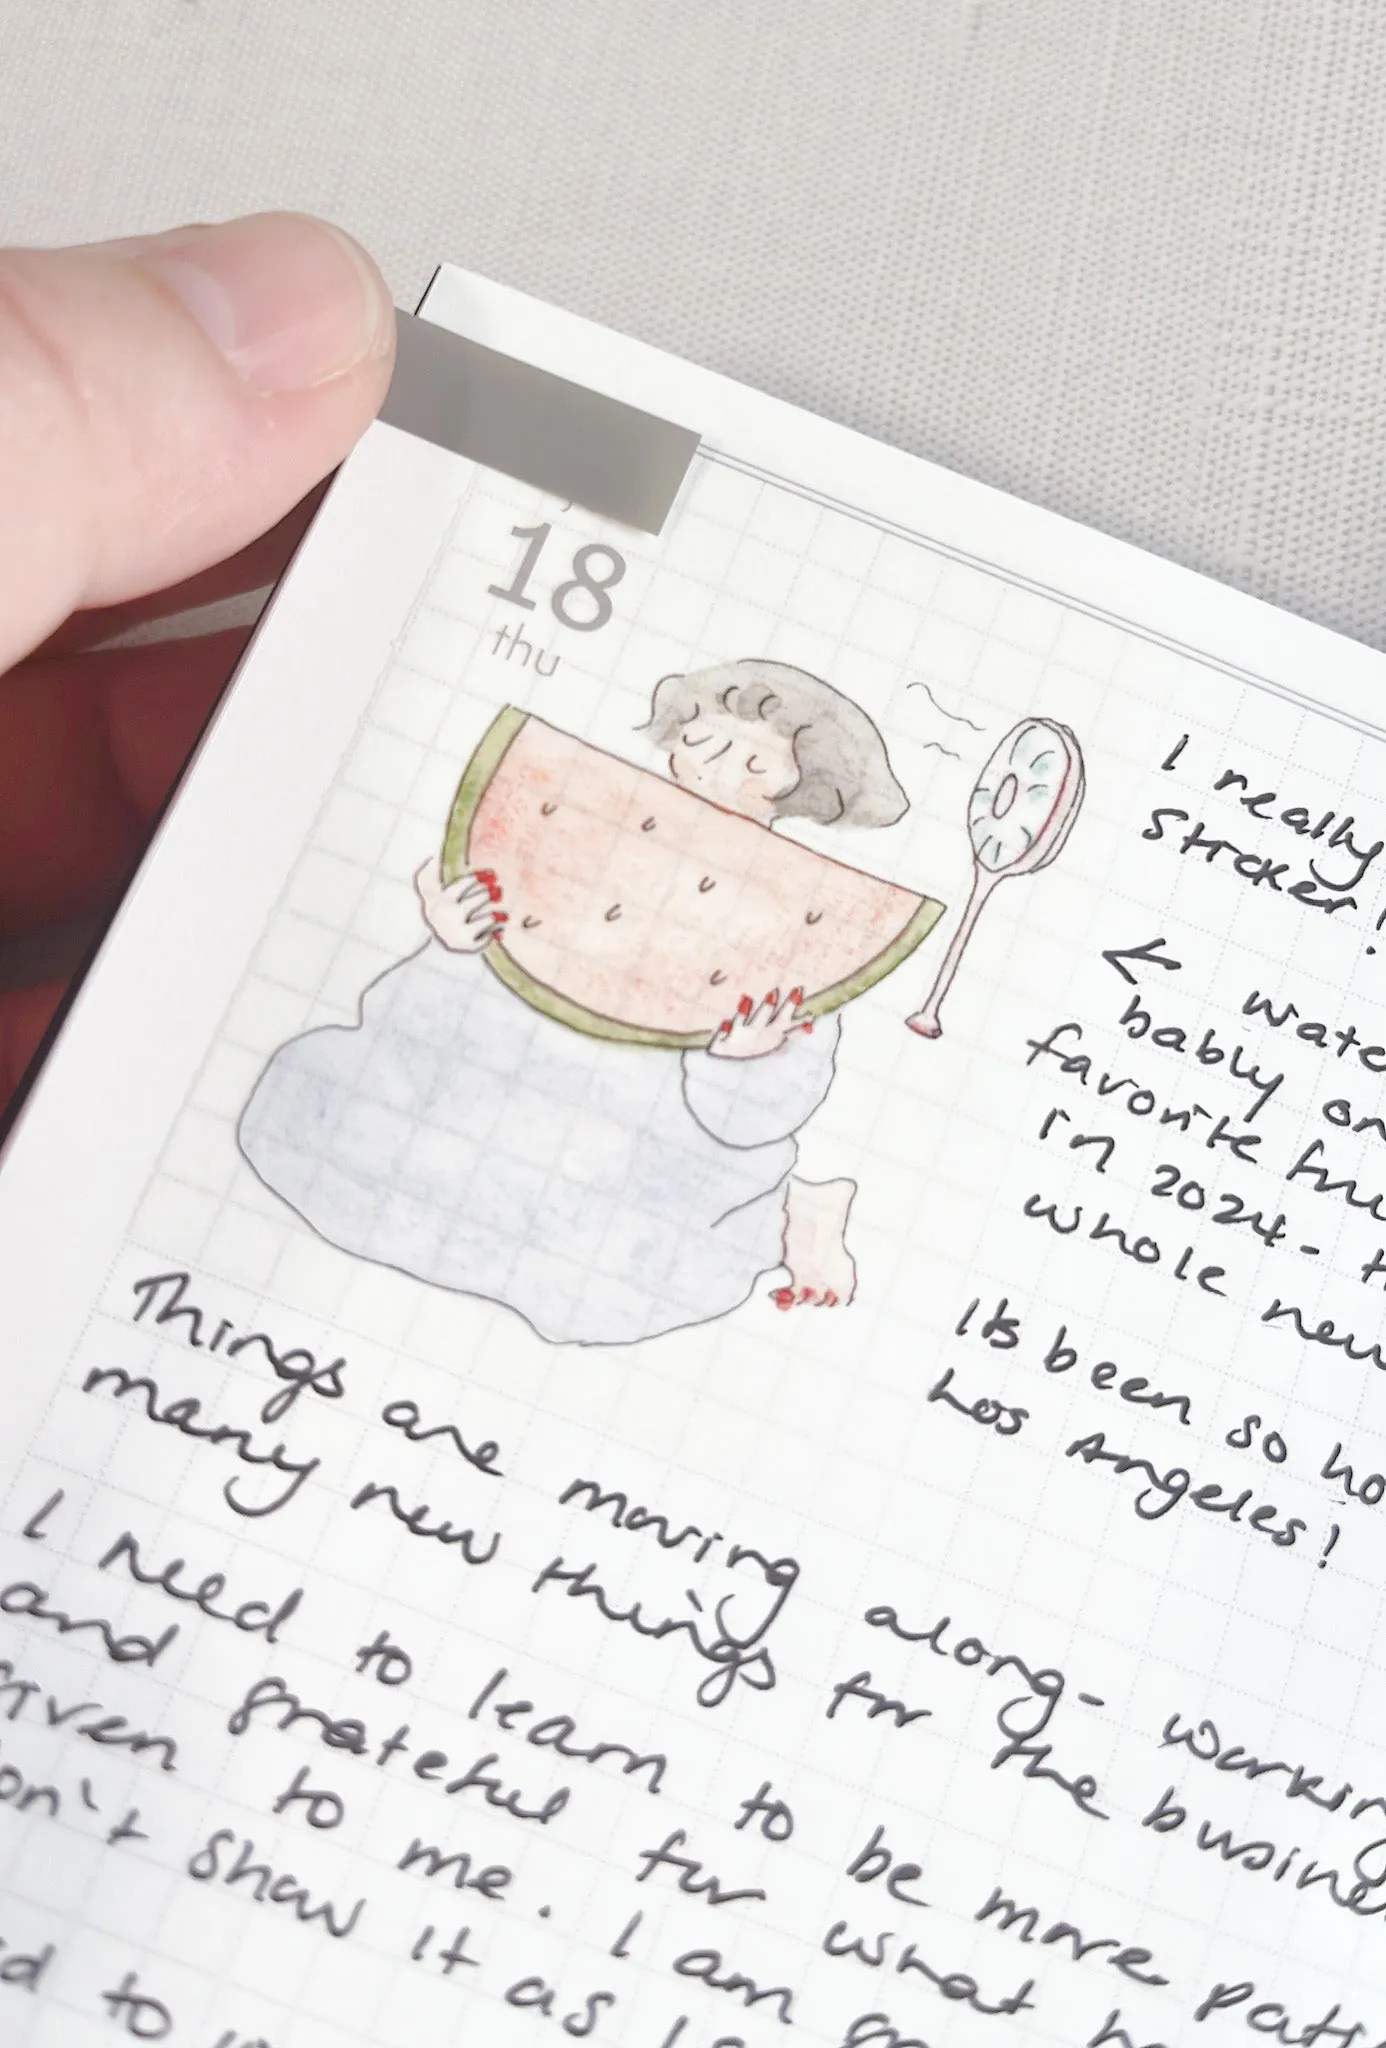 18
thu
I really
Sticker!
← wate
bably on
favorite fru
in 2024 - t
whole new
Its been so ho
Los Angeles!
Things are moving along - working
many new things for the busines
I need to learn to be more pati
and grateful for what h
given to me. I am gr
on't show it as I
to